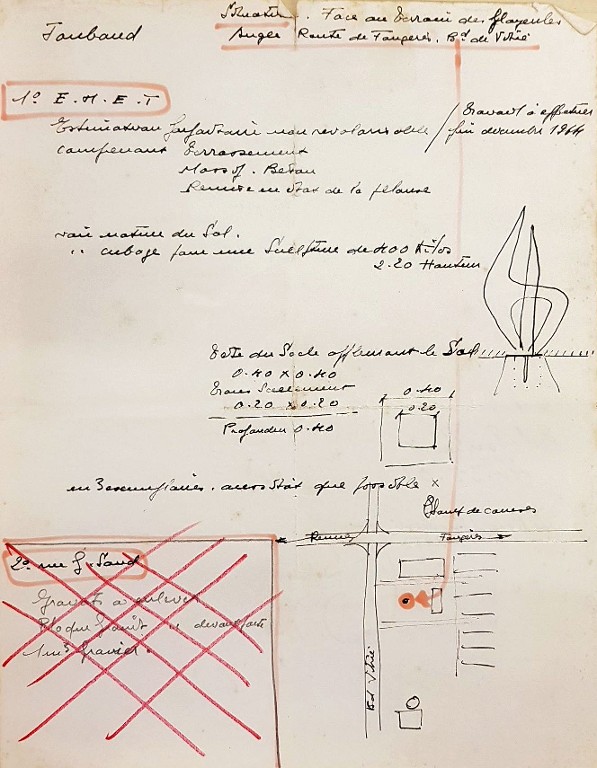 Joubaud
Situation. Face au terrain des Gayeules
Angle Route de Fougères. Bd de Vitré
1º E.M.E.T
Estimation forfaitaire non revolarisable
comprenant terrassement
Massif. Beton
Remise en etat de la pelouse
/ travail à effectuer
/ fin decembre 1964
voir nature du Sol.
" cubage pour une Sculpture de 400 Kilos
2.20 Hauteur
Tete du Socle affleurant le Sol
0.40 x 0.40
trous Scellement
0.20 x 0.20
Profondeur 0.40
0.40
0.20
en 3 exemplaires. aussitôt que possible x
Champ de courses
Rennes
Fougères
Bd Vitré
2º rue G. Sand
Gravats à enlever
Bloque Granit " devant porte
1 m3 Gravier.